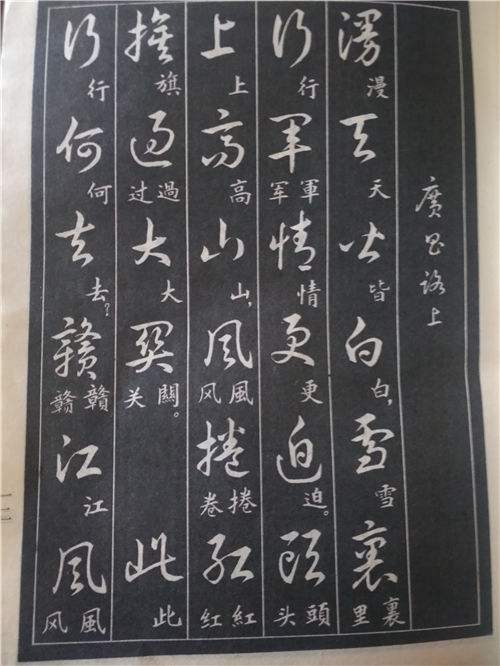 廣昌路上
漫天皆白雪裏
漫天皆白,雪裏里
行軍情更迫頭
行軍军情更迫。頭头
上高山風捲紅
上高山,風风捲卷紅红
旗過大關此
旗過过大關。关此
行何去贛江風
行何去?贛赣江風风